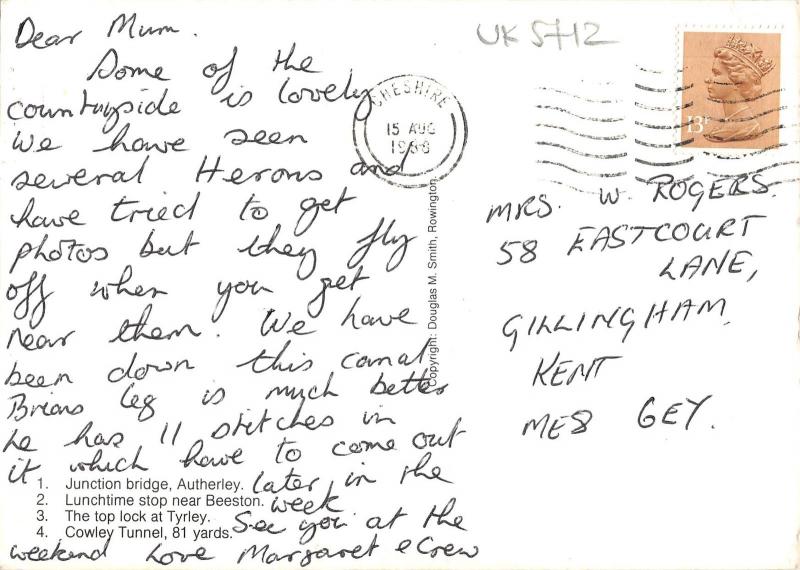 Dear Mum.
Some of the
countryside is lovely
We have seen
several Herons and
have tried to get
photos but they fly
off when you get
near them. We have
been down this canal
Brians leg is much better
he has 11 stitches in
it which have to come out
later in the
week
See you at the
weekend Love Margaret & Crew
1. Junction bridge, Autherley.
2. Lunchtime stop near Beeston.
3. The top lock at Tyrley.
4. Cowley Tunnel, 81 yards.
Copyright: Douglas M. Smith, Rowington.
UK 5712
CHESHIRE
15 AUG
1986
13P
MRS. W. ROGERS.
58 EASTCOURT
LANE,
GILLINGHAM,
KENT
ME8 6EY.